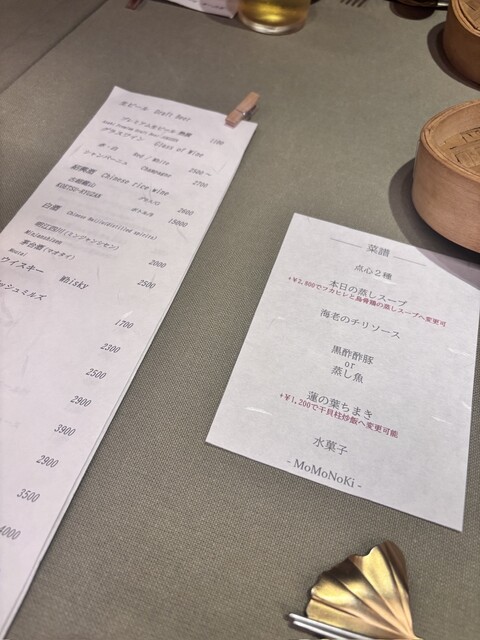 生ビール Draft Beer
プレミアム生ビール 熟撰
1100
グラスワイン Glass of Wine
赤・白 Red / White 1500～
シャンパーニュ Champagne 2700
紹興酒 Chinese rice wine
古越龍山 グラス/G 2600
KOETSU-RYUZAN ボトル/B 15000
白酒 Chinese Baijiu(distilled spirits)
明江四川(ミンジャンシセン) 2000
茅台酒(マオタイ) 2500
Moutai
ウイスキー Whisky
ッシュミルズ 1700
2300
2500
2900
3900
2900
3500
4000
菜譜
点心2種
本日の蒸しスープ
+¥2,800でフカヒレと烏骨鶏の蒸しスープへ変更可
海老のチリソース
黒酢酢豚
or
蒸し魚
蓮の葉ちまき
+¥1,200で干貝柱炒飯へ変更可能
水菓子
- MoMoNoKi -